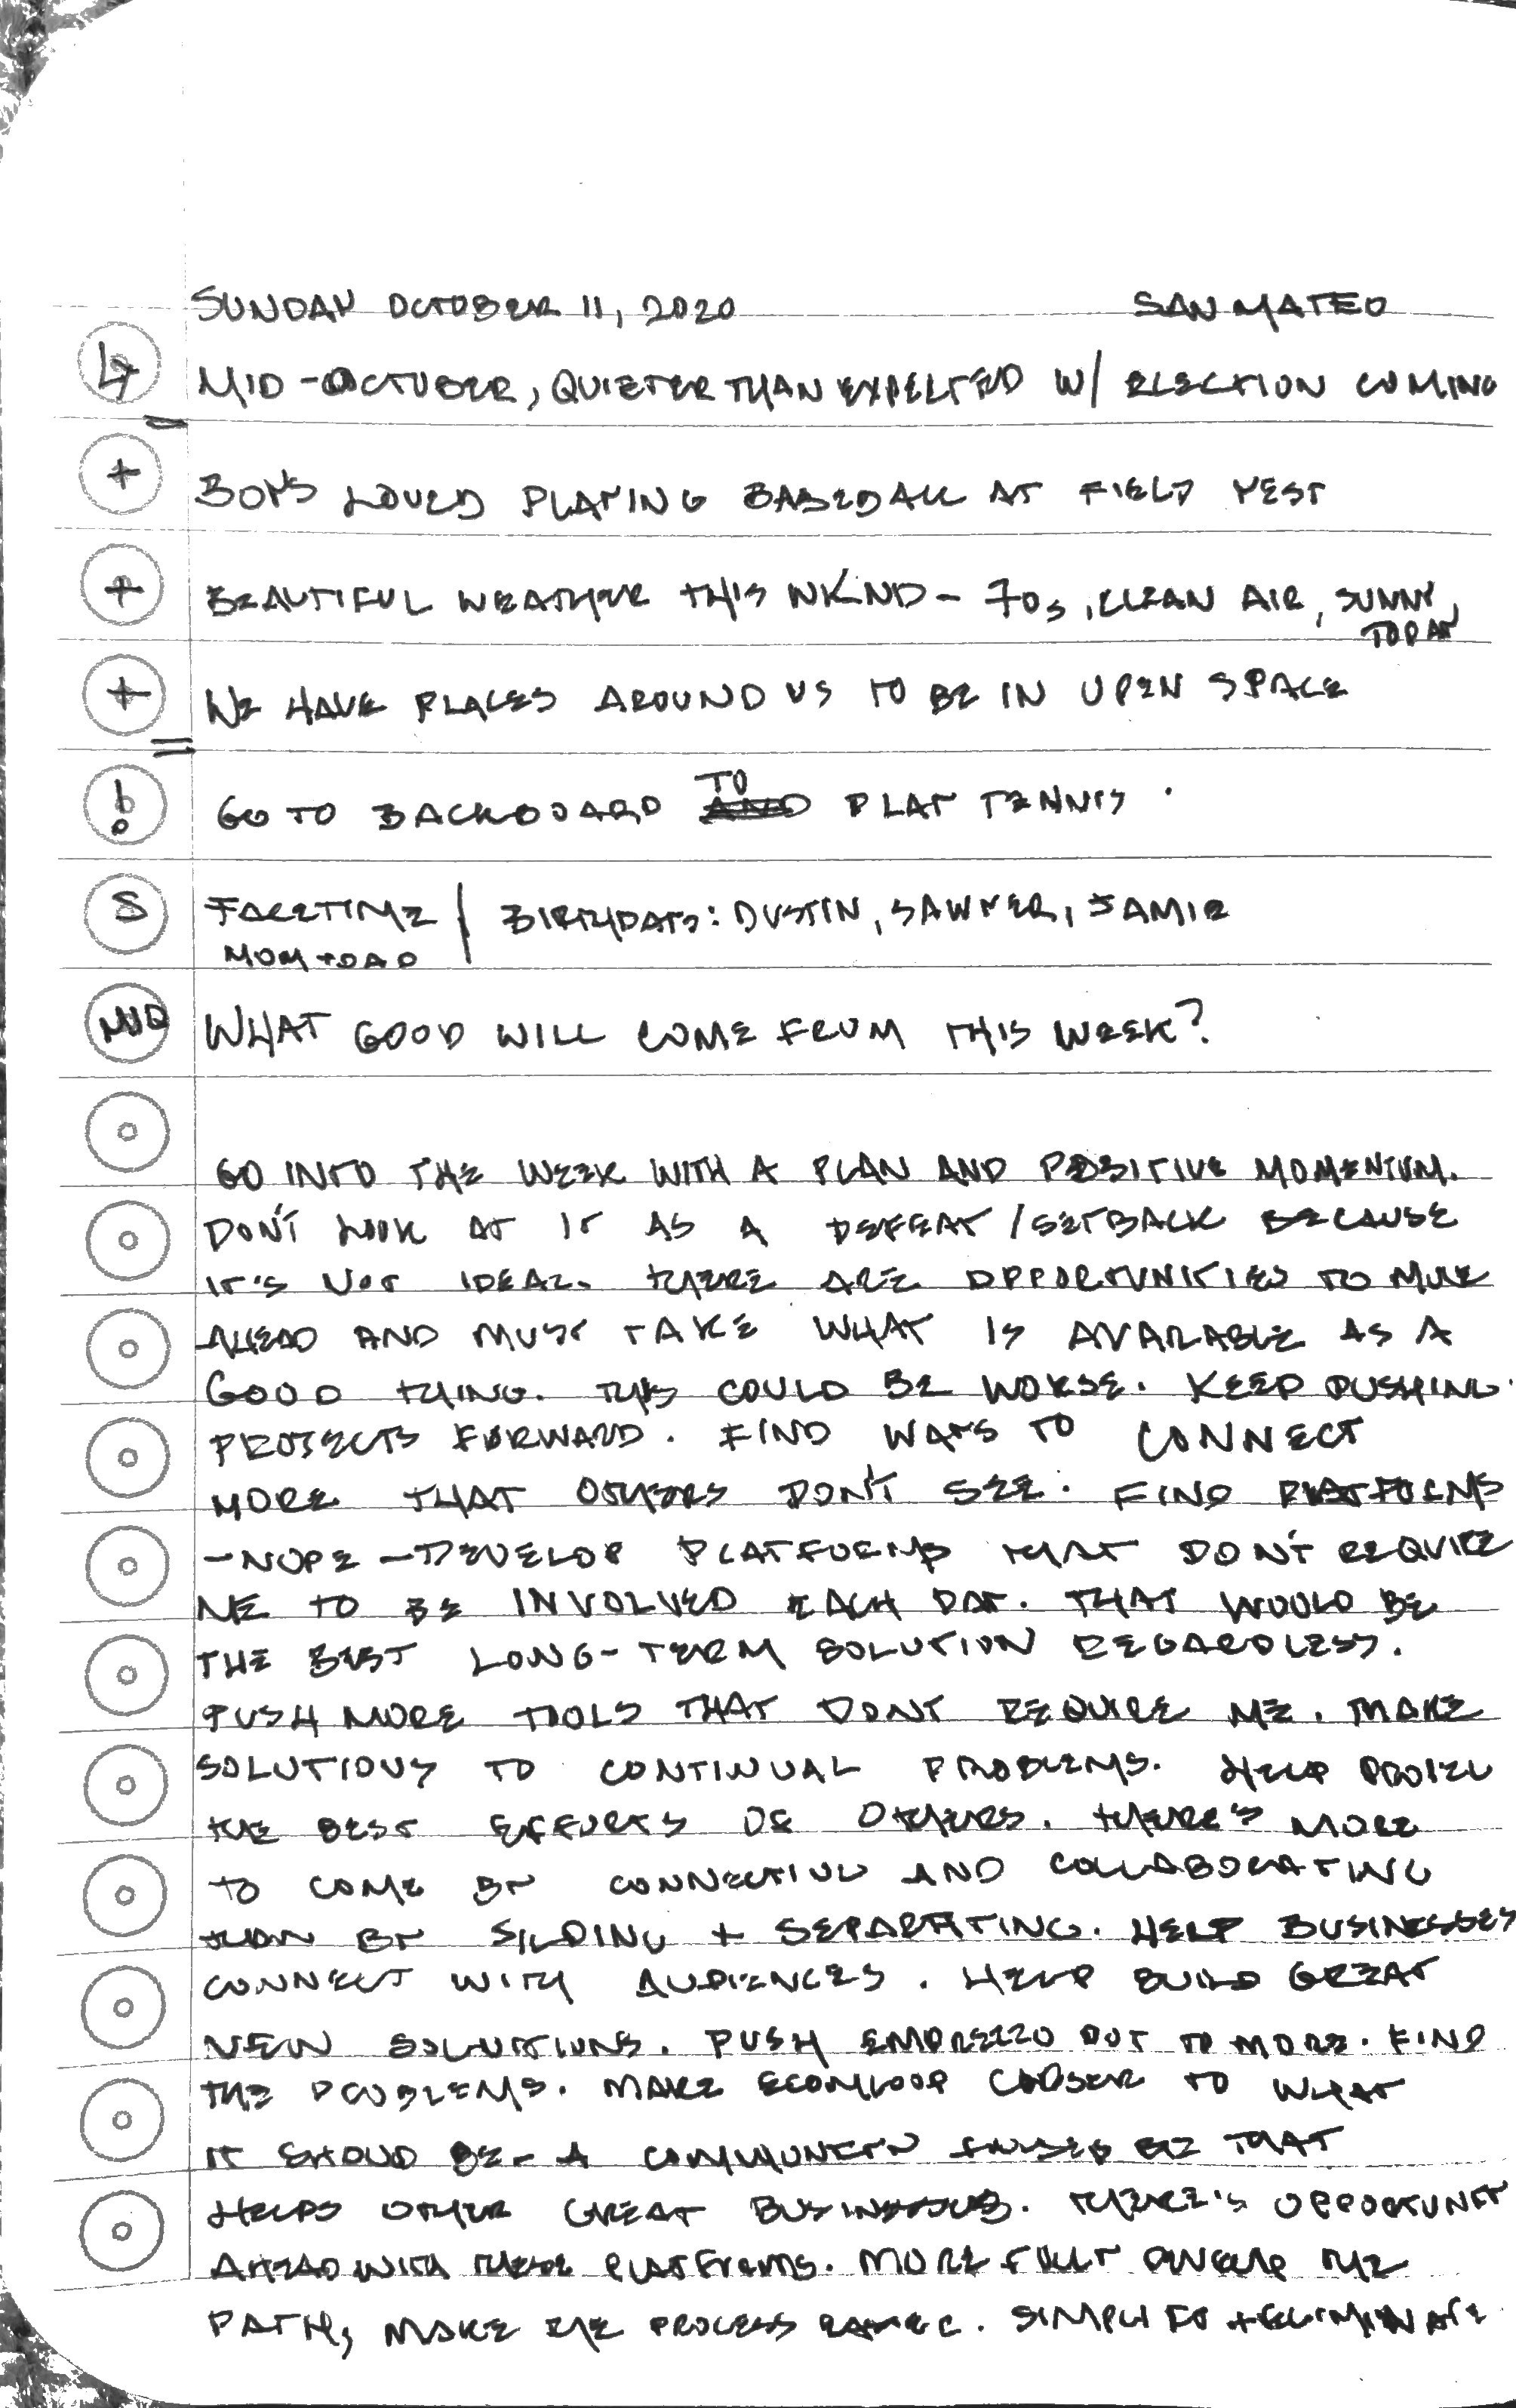 SUNDAY OCTOBER 11, 2020 SAN MATEO
MID-OCTOBER, QUIETER THAN EXPECTED W/ ELECTION COMING
+ BOYS LOVED PLAYING BASEBALL AT FIELD YEST
+ BEAUTIFUL WEATHER THIS WKND - 70s, CLEAN AIR, SUNNY,
TODAY
+ WE HAVE PLACES AROUND US TO BE IN OPEN SPACE
! GO TO BACKBOARD TO PLAY TENNIS.
S FACETIME | BIRTHDAYS: DUSTIN, SAWYER, JAMIE
MOM + DAD
WHAT GOOD WILL COME FROM THIS WEEK?
GO INTO THE WEEK WITH A PLAN AND POSITIVE MOMENTUM.
DON'T LOOK AT IT AS A DEFEAT/SETBACK BECAUSE
IT'S NOT IDEAL. THERE ARE OPPORTUNITIES TO MOVE
AHEAD AND MUST TAKE WHAT IS AVAILABLE AS A
GOOD THING. THIS COULD BE WORSE. KEEP PUSHING
PROJECTS FORWARD. FIND WAYS TO CONNECT
MORE THAT OTHERS DON'T SEE. FIND PLATFORMS
-NOPE-DEVELOP PLATFORMS THAT DON'T REQUIRE
ME TO BE INVOLVED EACH DAY. THAT WOULD BE
THE BEST LONG-TERM SOLUTION REGARDLESS.
PUSH MORE TOOLS THAT DONT REQUIRE ME. MAKE
SOLUTIONS TO CONTINUAL PROBLEMS. HELP
THE BEST EFFORTS OF OTHERS. THERE'S MORE
TO COME BY CONNECTING AND COLLABORATING
THAN BY SILOING + SEPARATING. HELP BUSINESSES
CONNECT WITH AUDIENCES. HELP BUILD GREAT
NEW SOLUTIONS. PUSH OUT TO MORE. FIND
THE PROBLEMS. MAKE ECOMLOOP CLOSER TO WHAT
IT SHOULD BE - A COMMUNITY BIZ THAT
HELPS OTHER GREAT BUSINESSES. THERE'S OPPORTUNITY
AHEAD WITH THESE PLATFORMS. MORE FULLY DEVELOP THE
PATH, MAKE THE PROCESS EASIER. SIMPLIFY + ELIMINATE